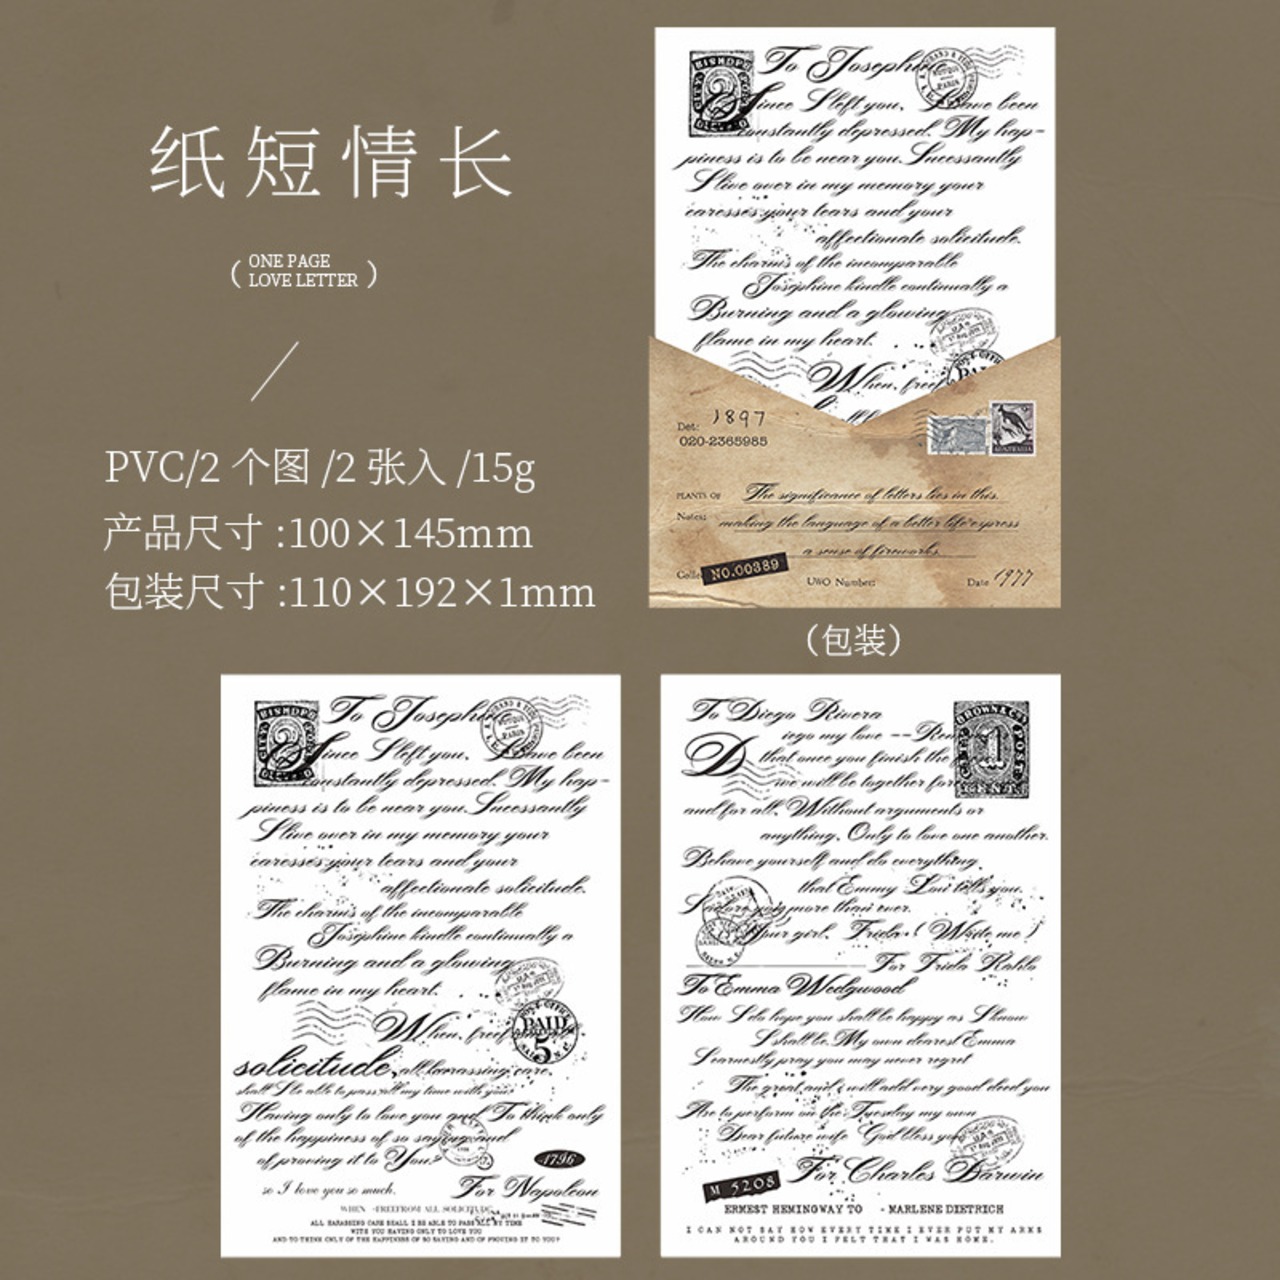 纸短情长
( ONE PAGE
LOVE LETTER )
PVC/2 个图 /2 张入 /15g
产品尺寸 :100×145mm
包装尺寸 :110×192×1mm
BISHOPS
CITY
POST
2
To Josephine
PARIS
Since I left you, I have been
constantly depressed. My hap-
piness is to be near you. Incessantly
I live over in my memory your
caresses, your tears and your
affectionate solicitude.
The charms of the incomparable
Josephine kindle continually a
Burning and a glowing
flame in my heart.
When, free
Det: 1897
020-2365985
AUSTRALIA
PLANTS OF The significance of letters lies in this.
Notes: making the language of a better life express
a sense of fireworks.
NO.00389
UWO Number:
Date 1977
(包装)
BISHOPS
CITY
POST
2
To Josephine
PARIS
Since I left you, I have been
constantly depressed. My hap-
piness is to be near you. Incessantly
I live over in my memory your
caresses, your tears and your
affectionate solicitude.
The charms of the incomparable
Josephine kindle continually a
Burning and a glowing
flame in my heart.
When, free from
PAID
5
solicitude, all harassing care,
shall I be able to pass all my time with you?
Having only to love you and To think only
of the happiness of so saying and
of proving it to You?
1796
so I love you so much.
For Napoleon
WHEN FREEFROM ALL SOLICITUDE
ALL HARASSING CARE SHALL I BE ABLE TO PASS ALL MY TIME
WITH YOU HAVING ONLY TO LOVE YOU
AND TO THINK ONLY OF THE HAPPINESS OF SO SAYING AND OF PROVING IT TO YOU?
To Diego Rivera
BROWN & CO'S
CITY
POST
1
CENT
Diego my love -- Rem
that once you finish the
we will be together for
and for all, Without arguments or
anything, Only to love one another.
Behave yourself and do everything
that Emmy Lou tells you.
I adore you more than ever.
Your girl, Frida ( Write me )
For Frida Kahlo
To Emma Wedgwood
How I do hope you shall be happy as I know
I shall be. My own dearest Emma
I earnestly pray you may never regret
The great, and I will add very good deed you
Are to perform on the Tuesday my own
Dear future wife God bless you
M 5208
For Charles Darwin
ERMEST HEMINGWAY TO - MARLENE DIETRICH
I CAN NOT SAY HOW EVERY TIME I EVER PUT MY ARMS
AROUND YOU I FELT THAT I WAS HOME.